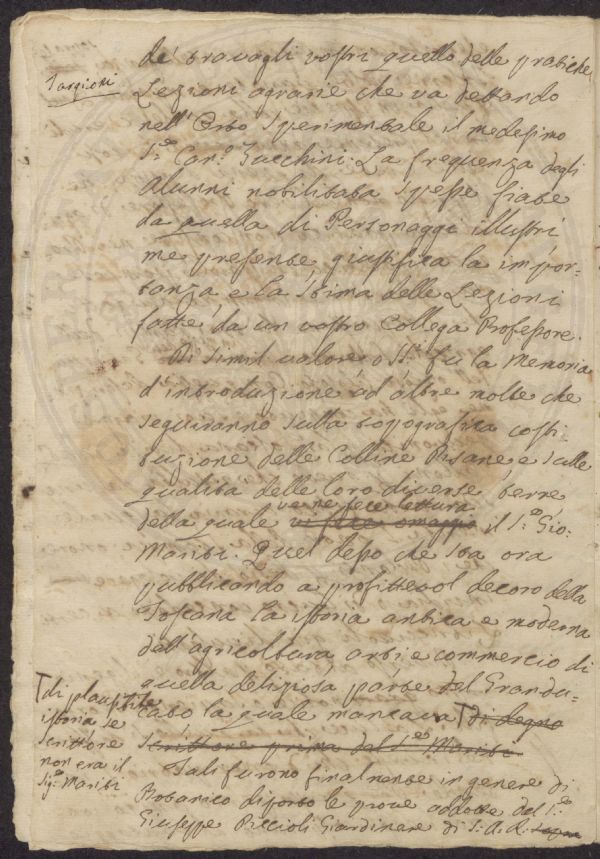 Targioni
de' travagli vostri quello delle pratiche
Lezioni agrarie che va dettando
nell'Orto Sperimentale il medesimo
S.r Can.o Zucchini. La frequenza degli
Alunni nobilitata spesse fiate
da quella di Personaggi illustri
me presente, giustifica la impor-
tanza e la stima delle Lezioni
fatte da un vostro Collega Professore.
Di simil valore o SS.ri fu la Memoria
d'introduzione ad altre molte che
seguiranno sulla topografica costi
tuzione delle Colline Pisane, e sulle
qualità delle loro diverse terre
ve ne fece lettura
della quale vi fece omaggio il S.r Gio:
Mariti. Quel desso che sta ora
pubblicando a profittevol decoro della
Toscana la istoria antica e moderna
dell'agricoltura arti e commercio di
quella deliziosa parte del Grandu-
cato la quale mancava di degno
scrittore prima del S.r Mariti.
di plausibile
istoria se
scrittore
non era il
Sig.r Mariti
Tali furono finalmente in genere di
Botanico discorso le prove addotte dal S.r
Giuseppe Piccioli Giardiniere di S. A. R.